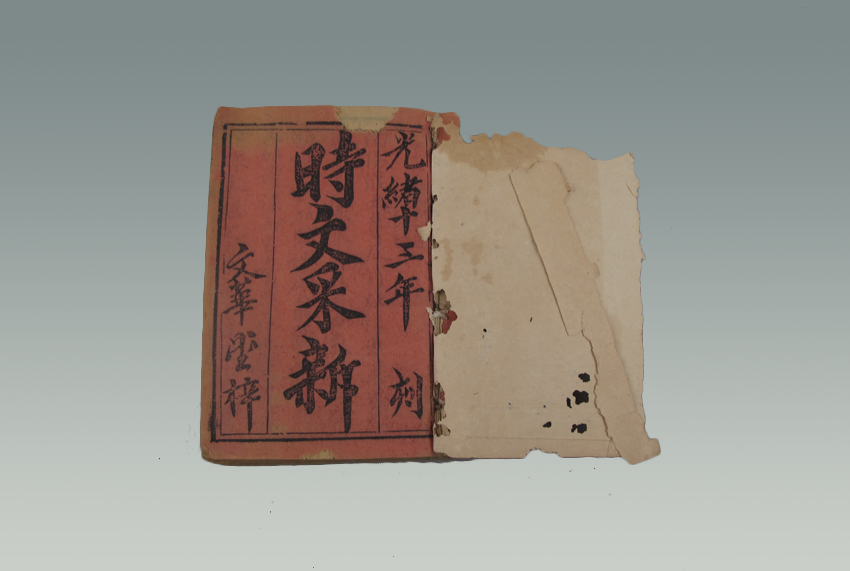 光緒十三年 刻
時文采新
文華堂梓